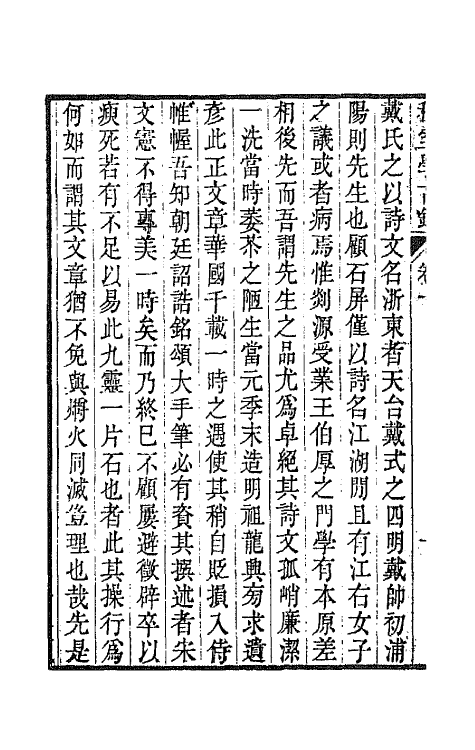 戴氏之以詩文名浙東者天台戴式之四明戴師初浦
陽則先生也顧石屏僅以詩名江湖閒且有江右女子
之議或者病焉惟剡源受業王伯厚之門學有本原差
相後先而吾謂先生之品尤爲卓絕其詩文孤峭廉潔
一洗當時萎苶之陋生當元季末造明祖龍興旁求遺
彥此正文章華國千載一時之遇使其稍自貶損入侍
帷幄吾知朝廷詔誥銘頌大手筆必有資其撰述者朱
文憲不得專美一時矣而乃終巳不顧屢避徵辟卒以
瘐死若有不足以易此九靈一片石也者此其操行爲
何如而謂其文章猶不免與爝火同滅豈理也哉先是